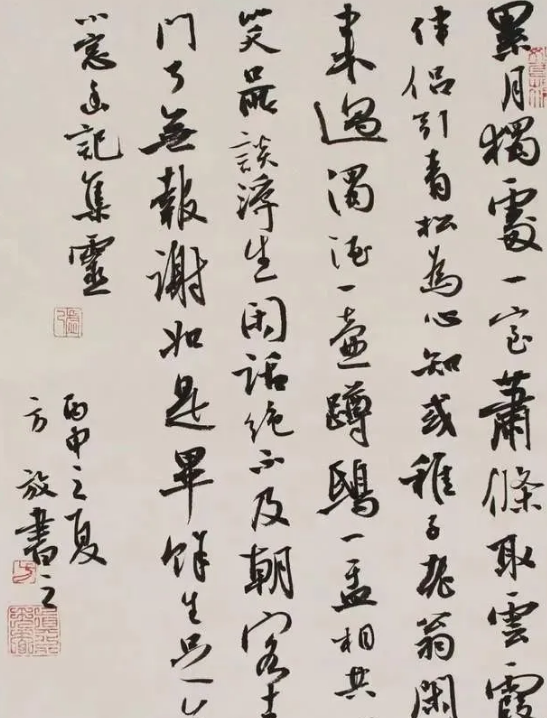 累月獨處一室蕭條取雲霞
伴侶引青松為心知或稚子老翁閑
來過濁酒一壺蹲鴟一盂相共
笑品談浮生閑話絕不及朝客去
門了無報謝如是畢餘生足
小窗幽記集靈
丙申之夏
方放書之